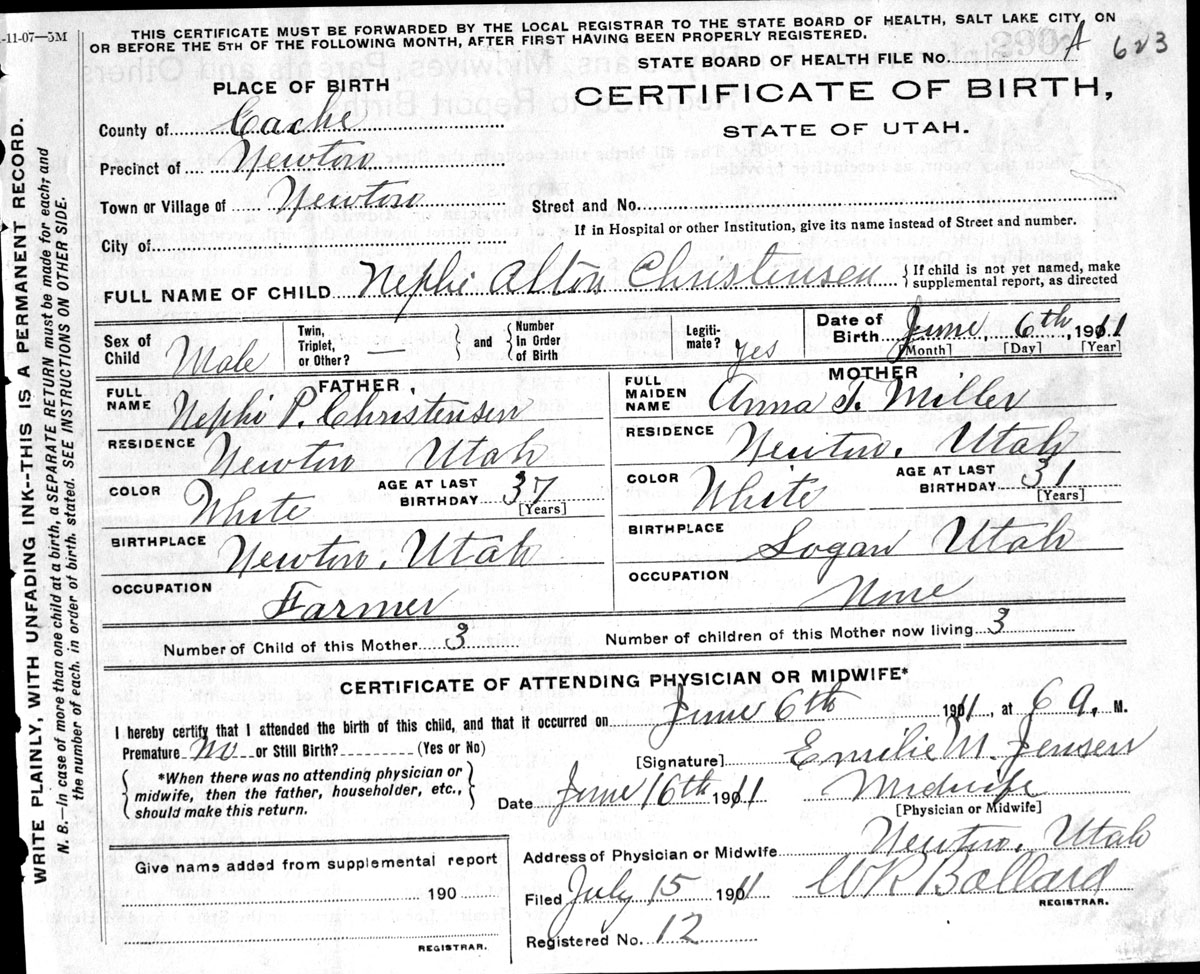 -11-07—5M
THIS CERTIFICATE MUST BE FORWARDED BY THE LOCAL REGISTRAR TO THE STATE BOARD OF HEALTH, SALT LAKE CITY, ON
OR BEFORE THE 5TH OF THE FOLLOWING MONTH, AFTER FIRST HAVING BEEN PROPERLY REGISTERED.
STATE BOARD OF HEALTH FILE No. A 623
PLACE OF BIRTH
CERTIFICATE OF BIRTH,
STATE OF UTAH.
County of Cache
Precinct of Newton
Town or Village of Newton
Street and No.
If in Hospital or other Institution, give its name instead of Street and number.
City of
FULL NAME OF CHILD Nephi Alton Christensen { If child is not yet named, make
supplemental report, as directed
Sex of Child Male Twin, Triplet, or Other? — and Number In Order of Birth Legiti-mate? yes Date of Birth June 6th, 1911
[Month] [Day] [Year]
FATHER
FULL NAME Nephi P. Christensen
RESIDENCE Newton Utah
COLOR White AGE AT LAST BIRTHDAY 37 [Years]
BIRTHPLACE Newton, Utah
OCCUPATION Farmer
MOTHER
FULL MAIDEN NAME Anna T. Miller
RESIDENCE Newton, Utah
COLOR White AGE AT LAST BIRTHDAY 31 [Years]
BIRTHPLACE Logan Utah
OCCUPATION None
Number of Child of this Mother 3 Number of children of this Mother now living 3
CERTIFICATE OF ATTENDING PHYSICIAN OR MIDWIFE*
I hereby certify that I attended the birth of this child, and that it occurred on June 6th 1911, at 6 a. M.
Premature No or Still Birth? (Yes or No)
[Signature] Emilie M. Jensen
{ *When there was no attending physician or
midwife, then the father, householder, etc.,
should make this return. }
Date June 16th 1911 Midwife
[Physician or Midwife]
Address of Physician or Midwife Newton, Utah
Give name added from supplemental report
190
REGISTRAR.
Filed July 15 1911 W R Ballard
REGISTRAR.
Registered No. 12
WRITE PLAINLY, WITH UNFADING INK--THIS IS A PERMANENT RECORD.
N. B.—In case of more than one child at a birth, a SEPARATE RETURN must be made for each; and
the number of each, in order of birth, stated. SEE INSTRUCTIONS ON OTHER SIDE.